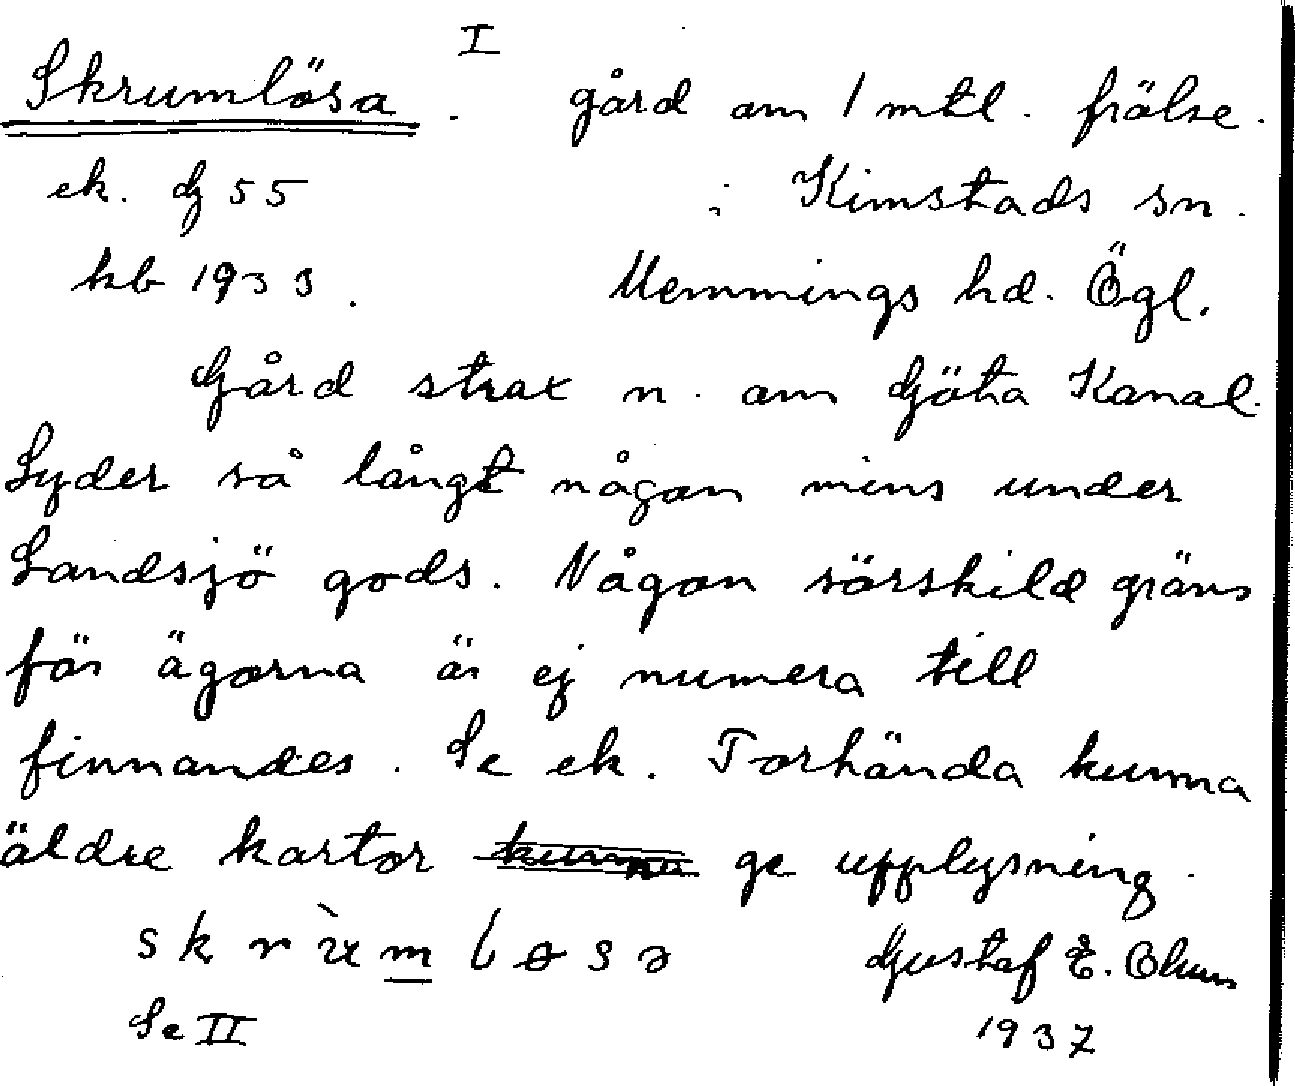 I
Skrumlösa. gård om 1 mtl. frälse.
ek. G 55 i Kimstads sn.
hb 1933. Memmings hd. Ögl.
Gård strax n. om Göta Kanal.
Lyder så långt någon mins under
Landsjö gods. Någon särskild gräns
för ägorna är ej numera till
finnandes. Se ek. Torhända kunna
äldre kartor kunna ge upplysning.
skrùmløsə Gustaf E. Ohun
Se II 1937